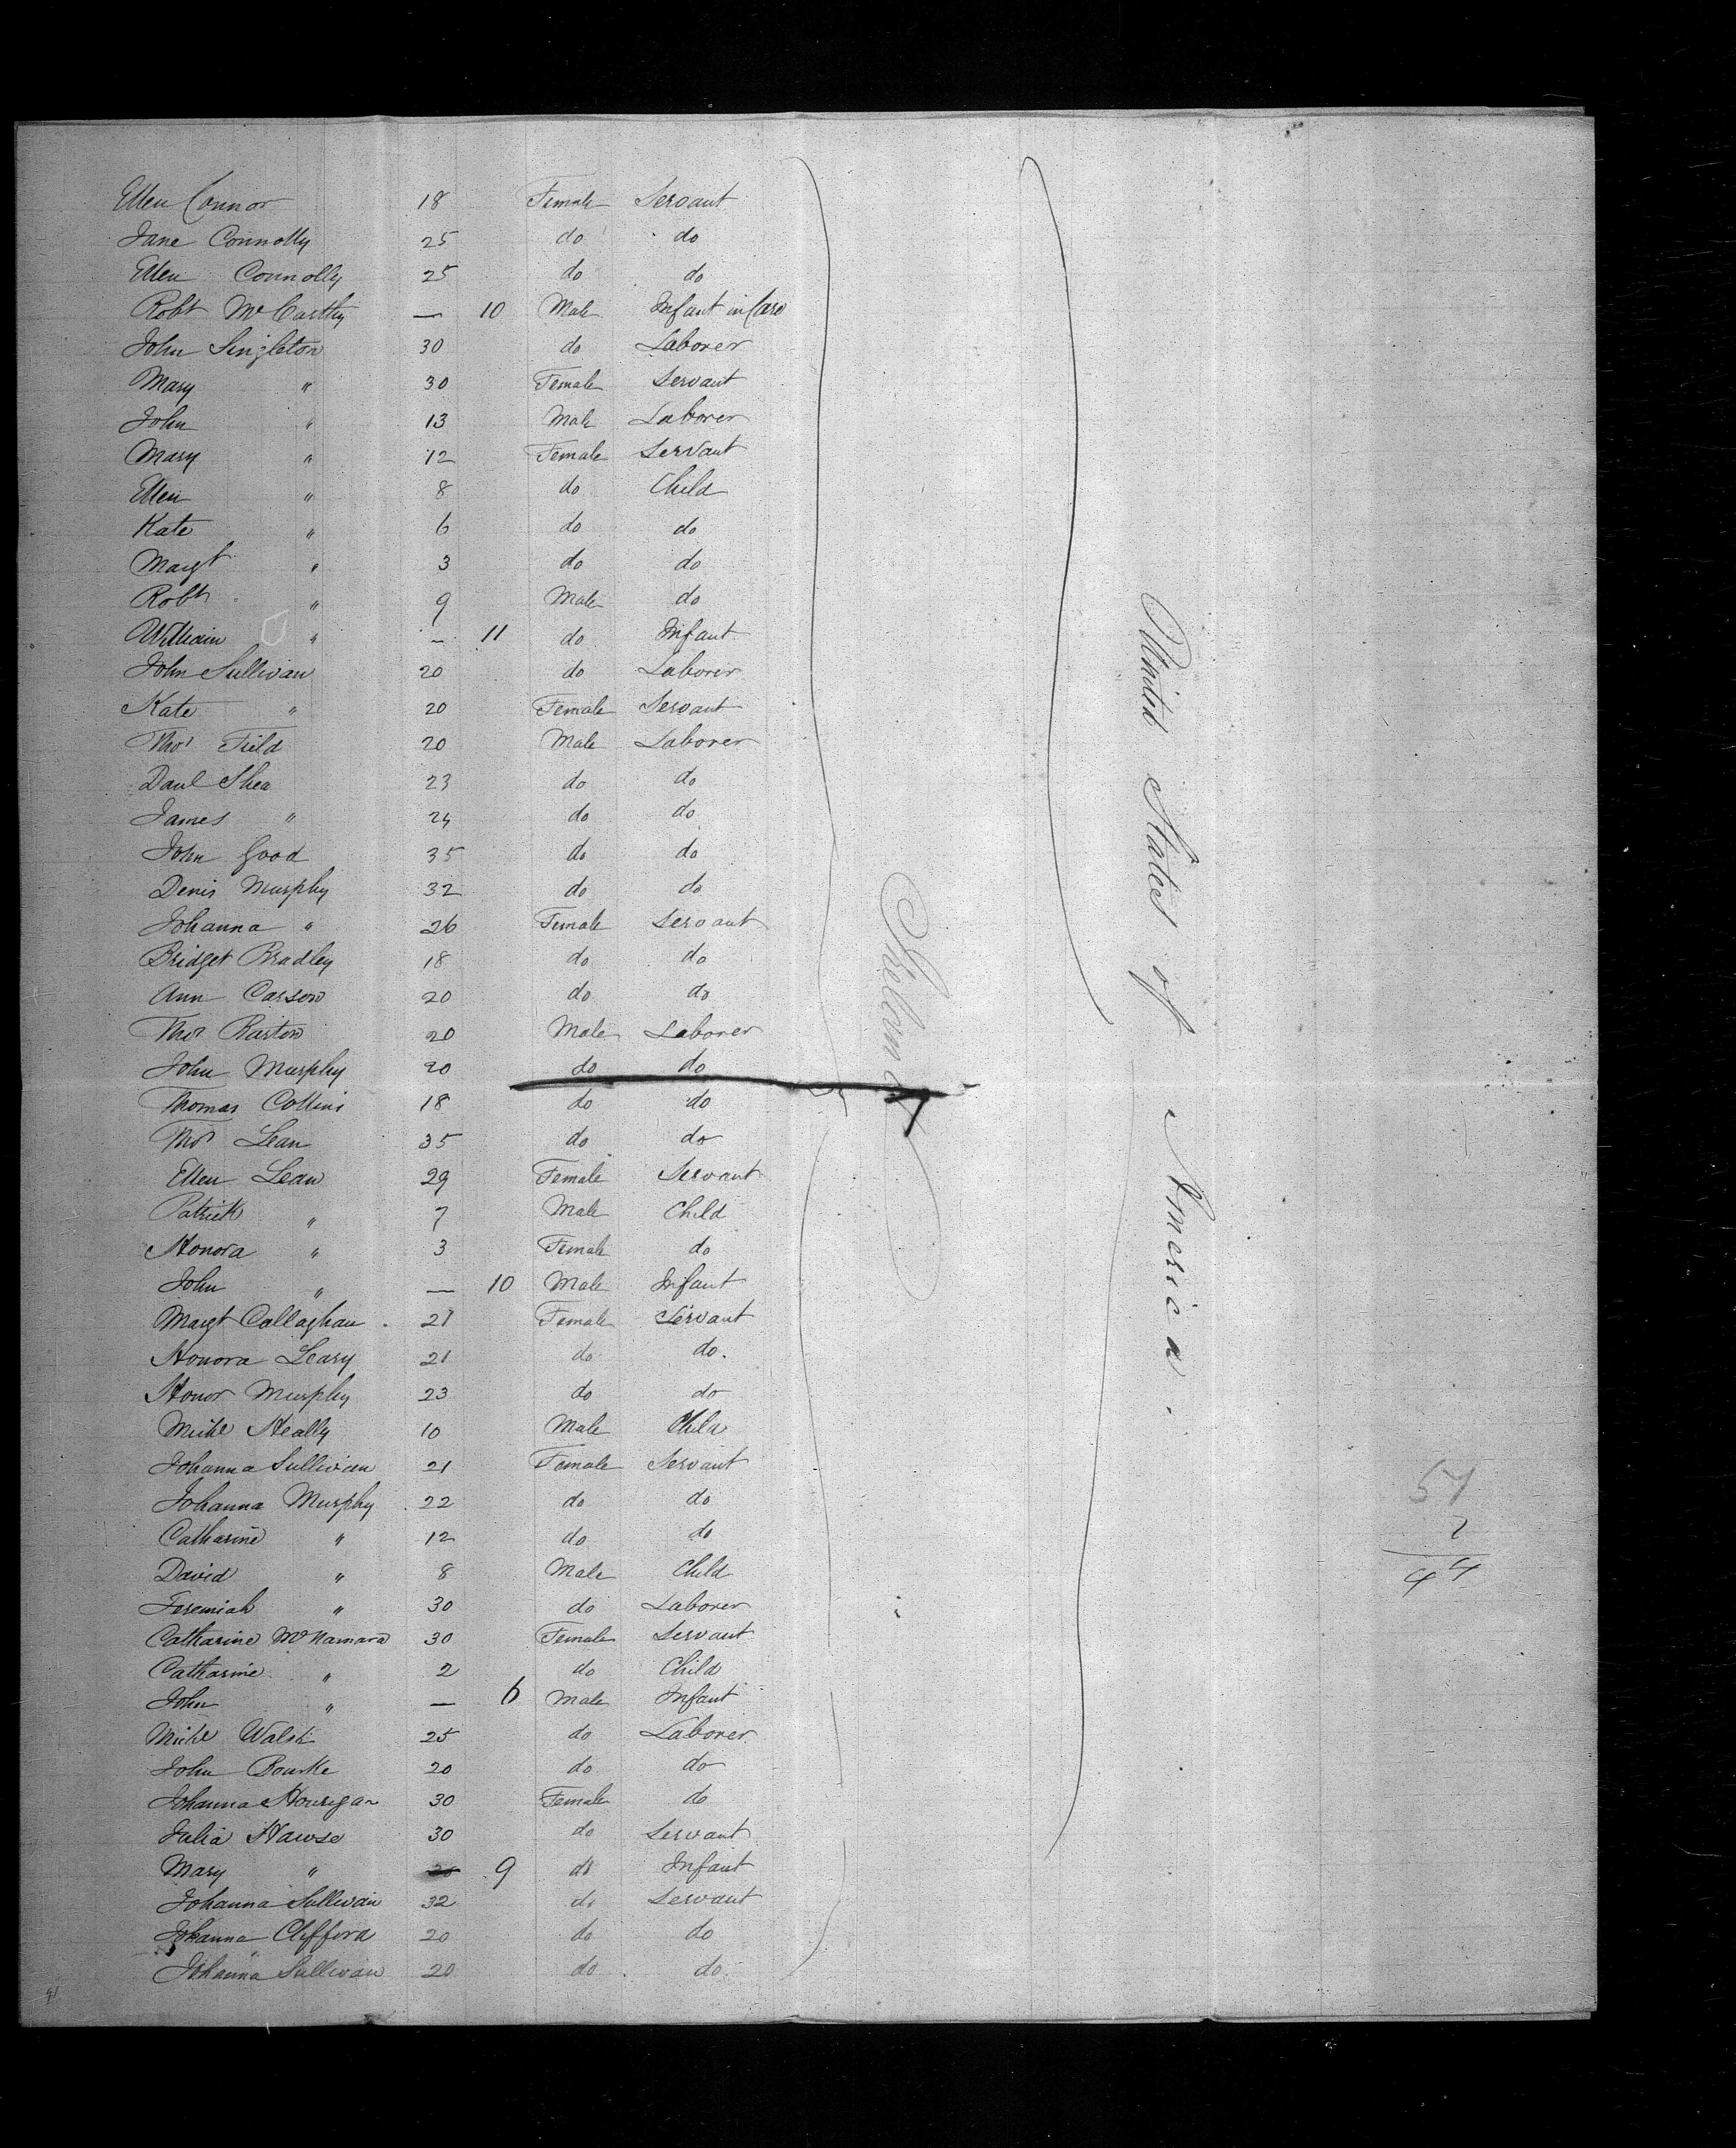 Ellen Connor 18 Female Servant
Jane Connolly 25 do do
Ellen Connolly 25 do do
Robt McCarthy — 10 Male Infant in Care
John Singleton 30 do Laborer
Mary " 30 Female Servant
John " 13 Male Laborer
Mary " 12 Female Servant
Ellen " 8 do Child
Kate " 6 do do
Margt " 3 do do
Robt " 9 Male do
William " — 11 do Infant
John Sullivan 20 do Laborer
Kate " 20 Female Servant
Thos Field 20 Male Laborer
Danl Shea 23 do do
James " 24 do do
John Good 35 do do
Denis Murphy 32 do do
Johanna " 26 Female Servant
Bridget Bradley 18 do do
Ann Carson 20 do do
Thos Barton 20 Male Laborer
John Murphy 20 do do
Thomas Collins 18 do do
Thos Lean 35 do do
Ellen Lean 29 Female Servant
Patrick " 7 Male Child
Honora " 3 Female do
John " — 10 Male Infant
Margt Callaghan 21 Female Servant
Honora Leary 21 do do
Honor Murphy 23 do do
Michl Heally 10 Male Child
Johanna Sullivan 21 Female Servant
Johanna Murphy 22 do do
Catharine " 12 do do
David " 8 Male Child
Jeremiah " 30 do Laborer
Catharine McNamara 30 Female Servant
Catharine " 2 do Child
John " — 6 Male Infant
Michl Walsh 25 do Laborer
John Bourke 20 do do
Johanna Hourigan 30 Female do
Julia Hawse 30 do Servant
Mary " 9 do Infant
Johanna Sullivan 32 do Servant
Johanna Clifford 20 do do
Johanna Sullivan 20 do do
United States of America.